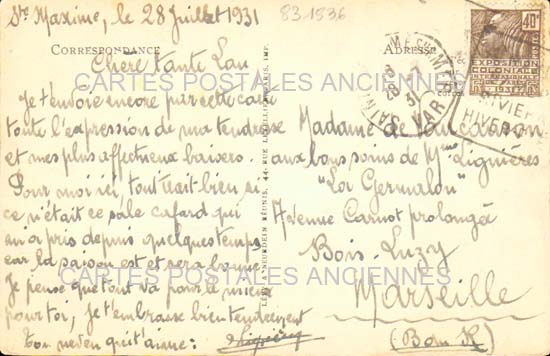 Ste Maxime, le 28 Juillet 1931
83-1836
CORRESPONDANCE
ADRESSE
Chère tante Lau
Je t'envoie encore par cette carte
toute l'expression de ma tendresse
et mes plus affectueux baisers.
Pour moi ici, tout irait bien si
ce n'était ce sale cafard qui
m'a pris depuis quelques temps
car la saison est et sera bonne
Je pense que tout va pour le mieux
pour toi, je t'embrasse bien tendrement
ton neveu qui t'aime:
Madame de
aux bons soins de Mme Lignières
"Lor Germalou"
Avenue Carnot prolongée
Bois-Luzy
Marseille
(Bom R)
40c
EXPOSITION
COLONIALE
INTERNATIONALE
PARIS 1931
VAR
HIVER
CARTES POSTALES ANCIENNES
CARTES POSTALES ANCIENNES